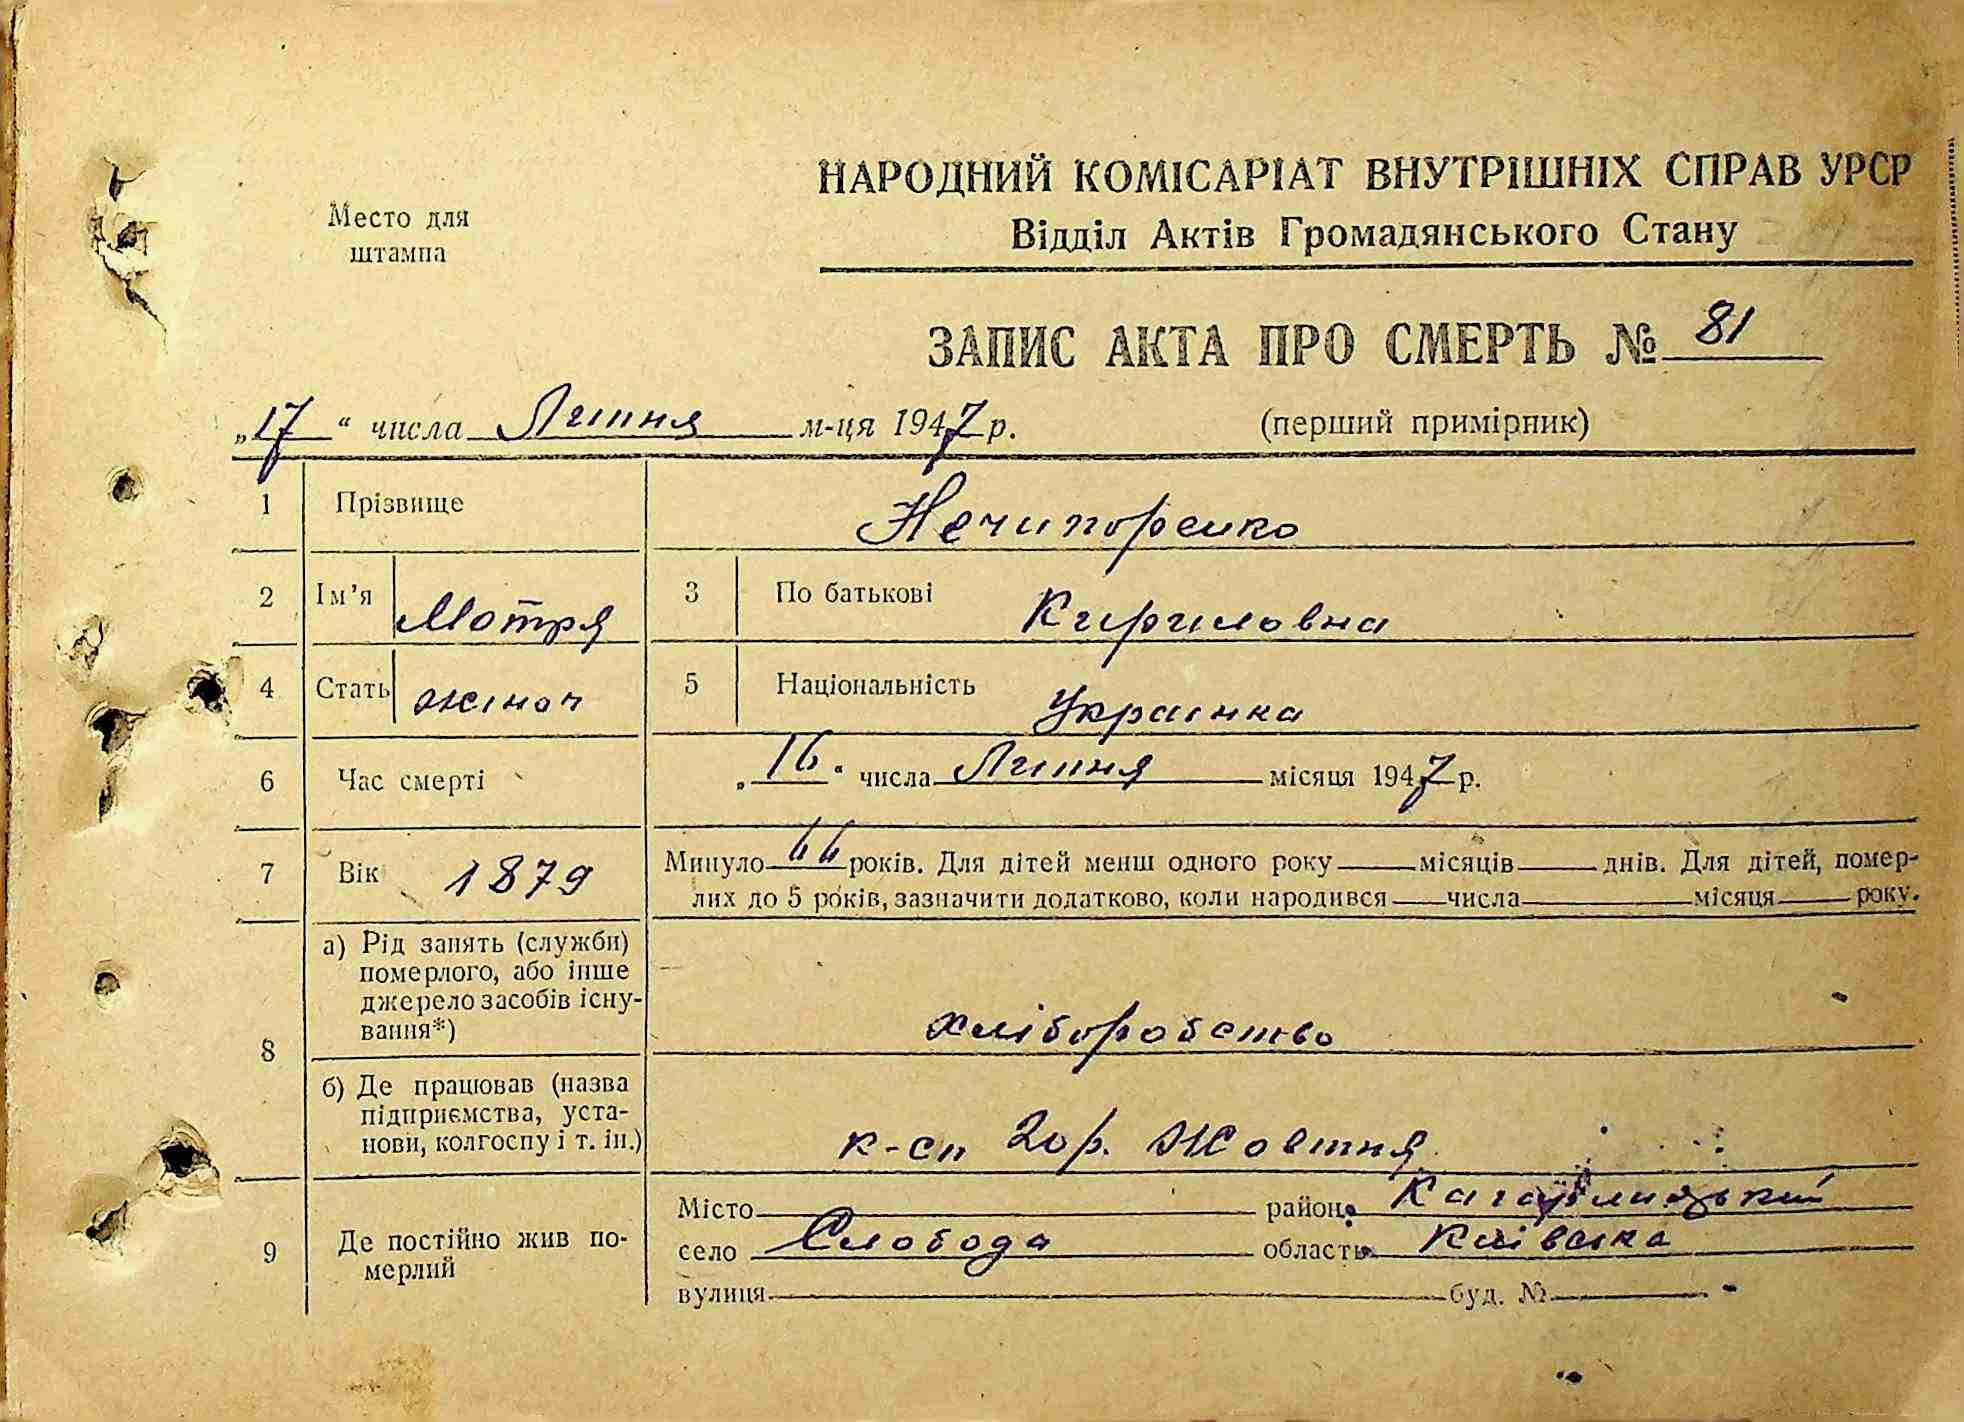 Место для
штампа
НАРОДНИЙ КОМІСАРІАТ ВНУТРІШНІХ СПРАВ УРСР
Відділ Актів Громадянського Стану
ЗАПИС АКТА ПРО СМЕРТЬ № 81
„17“ числа Липня м-ця 1947 р. (перший примірник)
1 Прізвище Нечипоренко
2 Ім’я Мотря 3 По батькові Кириловна
4 Стать жіноч 5 Національність Украінка
6 Час смерті „16“ числа Липня місяця 1947 р.
7 Вік 1879 Минуло років. Для дітей менш одного року місяців днів. Для дітей, помер-
лих до 5 років, зазначити додатково, коли народився числа місяця року.
8 а) Рід занять (служби)
померлого, або інше
джерело засобів існу-
вання*) хліборобство
б) Де працював (назва
підприємства, уста-
нови, колгоспу і т. ін.) к-сп 20 р. Жовтня
9 Де постійно жив по-
мерлий
Місто район Кагарлицький
село Слобода область Київська
вулиця буд. №